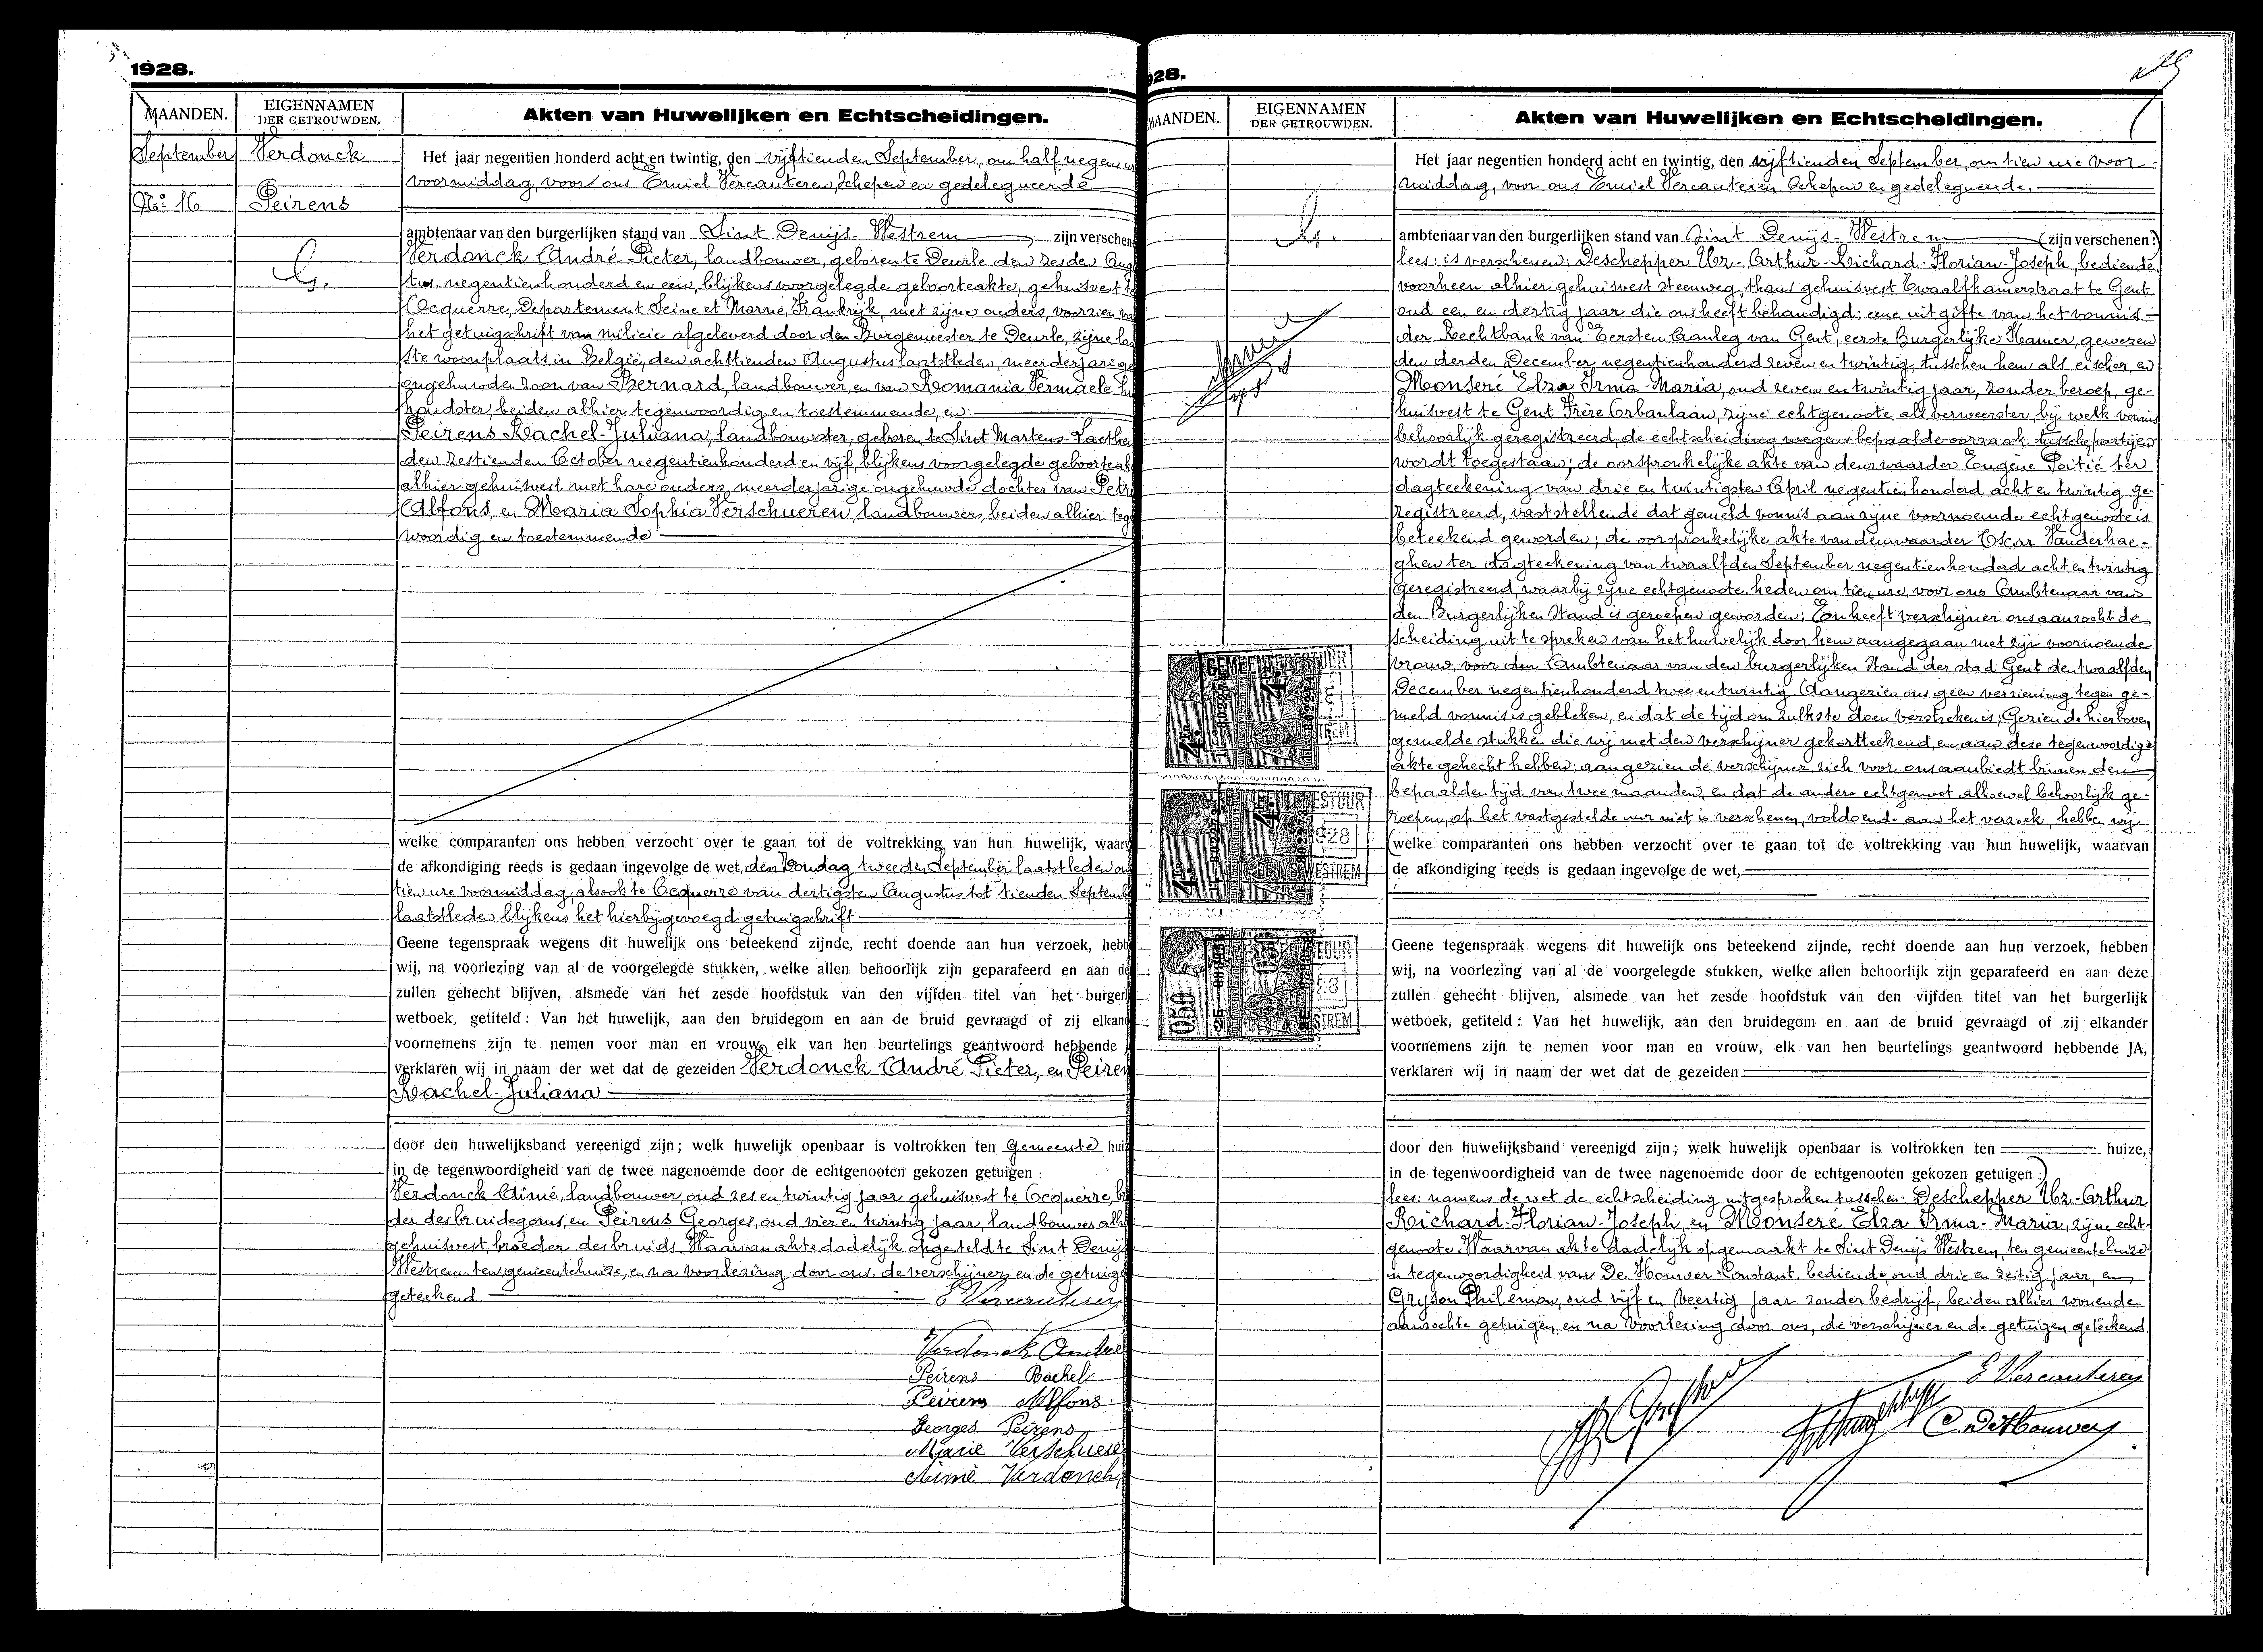 1928.
MAANDEN.
EIGENNAMEN
DER GETROUWDEN.
Akten van Huwelijken en Echtscheidingen.
September
Verdonck
No: 16
Peirens
Het jaar negentien honderd acht en twintig, den vijftienden September, om half negen
voormiddag, voor ons Emiel Vercauteren, schepen en gedelegueerde
ambtenaar van den burgerlijken stand van Sint Denijs-Westrem zijn verschen
Verdonck André-Pieter, landbouwer, geboren te Deurle den zesden Aug
tus negentienhonderd en een, blijkens voorgelegde geboorteakte, gehuisvest te
Ocquerre, Departement Seine et Marne, Frankrijk, met zijne ouders, voorzien va
het getuigschrift van milicie afgeleverd door den Burgemeester te Deurle, zijne laa
ste woonplaats in België, den achttienden Augustus laatstleden, meerderjarige
ongehuwden zoon van Bernard, landbouwer, en van Romania Vermaele hu
houdster, beiden alhier tegenwoordig en toestemmende, en:
Peirens Rachel-Juliana, landbouwster, geboren te Sint Martens Laethem
den zestienden October negentienhonderd en vijf, blijkens voorgelegde geboorteak
alhier gehuisvest met hare ouders, meerderjarige ongehuwde dochter van Petr
Alfons, en Maria Sophia Verschueren, landbouwers, beiden alhier teg
woordig en toestemmende
welke comparanten ons hebben verzocht over te gaan tot de voltrekking van hun huwelijk, waarv
de afkondiging reeds is gedaan ingevolge de wet, den Zondag tweeden September laatstleden om
tien ure voormiddag, alsook te Ocquerre van dertigsten Augustus tot tienden Septemb
laatstleden blijkens het hierbijgevoegd getuigschrift
Geene tegenspraak wegens dit huwelijk ons beteekend zijnde, recht doende aan hun verzoek, hebb
wij, na voorlezing van al de voorgelegde stukken, welke allen behoorlijk zijn geparafeerd en aan de
zullen gehecht blijven, alsmede van het zesde hoofdstuk van den vijfden titel van het burgerl
wetboek, getiteld: Van het huwelijk, aan den bruidegom en aan de bruid gevraagd of zij elkand
voornemens zijn te nemen voor man en vrouw, elk van hen beurtelings geantwoord hebbende
verklaren wij in naam der wet dat de gezeiden Verdonck André-Pieter, en Peiren
Rachel-Juliana
door den huwelijksband vereenigd zijn; welk huwelijk openbaar is voltrokken ten gemeente huiz
in de tegenwoordigheid van de twee nagenoemde door de echtgenooten gekozen getuigen:
Verdonck Aimé, landbouwer, oud zes en twintig jaar gehuisvest te Ocquerre, br
der des bruidegoms, en Peirens Georges, oud vier en twintig jaar, landbouwer alh
gehuisvest, broeder des bruids. Waarvan akte dadelijk opgesteld te Sint Denijs
Westrem ten gemeentehuize, en na voorlezing door ons, de verschijners en de getuige
geteekend.
E Vercauteren
Verdonck André
Peirens Rachel
Peirens Alfons
Georges Peirens
Marie Verschuere
Aimé Verdonck
928.
MAANDEN.
EIGENNAMEN
DER GETROUWDEN.
Akten van Huwelijken en Echtscheidingen.
Het jaar negentien honderd acht en twintig, den vijftienden September, om tien ure voor-
middag, voor ons Emiel Vercauteren Schepen en gedelegueerde.
ambtenaar van den burgerlijken stand van Sint Denijs-Westrem (zijn verschenen:)
lees: is verschenen: Deschepper Uez-Arthur-Richard-Florian-Joseph, bediende,
voorheen alhier gehuisvest steenweg, thans gehuisvest Twaalfkamerstraat te Gent
oud een en dertig jaar die ons heeft behandigd: eene uitgifte van het vonnis
der Rechtbank van Eersten Aanleg van Gent, eerste Burgerlijke Kamer, gewezen
den derden December negentienhonderd zeven en twintig, tusschen hem als eischer, en
Monseré Elza Irma-Maria, oud zeven en twintig jaar, zonder beroep, ge-
huisvest te Gent Frère Orbanlaan, zijne echtgenoote als verweerster, bij welk vonnis
behoorlijk geregistreerd, de echtscheiding wegens bepaalde oorzaak tusschepartijen
wordt toegestaan; de oorspronkelijke akte van deurwaarder Eugène Poitié ter
dagteekening van drie en twintigsten April negentien honderd acht en twintig ge-
registreerd, vaststellende dat gemeld vonnis aan zijne voornoemde echtgenoote is
beteekend geworden; de oorspronkelijke akte van deurwaarder Oscar Vanderhae-
ghen ter dagteekening van twaalfden September negentienhonderd acht en twintig
geregistreerd, waarbij zijne echtgenoote, heden om tien ure, voor ons Ambtenaar van
den Burgerlijken Stand is geroepen geworden; En heeft verschijner ons aanzocht de
scheiding uit te spreken van het huwelijk door hem aangegaan met zijn voornoemde
vrouw, voor den Ambtenaar van den burgerlijken Stand der stad Gent den twaalfden
December negentienhonderd twee en twintig. Aangezien ons geen verziening tegen ge-
meld vonnis is gebleken, en dat de tijd om zulks te doen verstreken is; Gezien de hierboven
gemelde stukken die wij met den verschijner gekortteekend, en aan deze tegenwoordige
akte gehecht hebben; aangezien de verschijner zich voor ons aanbiedt binnen den
bepaalden tijd van twee maanden, en dat de andere echtgenoot alhoewel behoorlijk ge-
roepen, op het vastgestelde uur niet is verschenen, voldoende aan het verzoek, hebben wij
(welke comparanten ons hebben verzocht over te gaan tot de voltrekking van hun huwelijk, waarvan
de afkondiging reeds is gedaan ingevolge de wet,
Geene tegenspraak wegens dit huwelijk ons beteekend zijnde, recht doende aan hun verzoek, hebben
wij, na voorlezing van al de voorgelegde stukken, welke allen behoorlijk zijn geparafeerd en aan deze
zullen gehecht blijven, alsmede van het zesde hoofdstuk van den vijfden titel van het burgerlijk
wetboek, getiteld: Van het huwelijk, aan den bruidegom en aan de bruid gevraagd of zij elkander
voornemens zijn te nemen voor man en vrouw, elk van hen beurtelings geantwoord hebbende JA,
verklaren wij in naam der wet dat de gezeiden
door den huwelijksband vereenigd zijn; welk huwelijk openbaar is voltrokken ten huize,
in de tegenwoordigheid van de twee nagenoemde door de echtgenooten gekozen getuigen:)
lees: namens de wet de echtscheiding uitgesproken tusschen: Deschepper Uez-Arthur
Richard-Florian-Joseph, en Monseré Elza Irma-Maria, zijne echt-
genoote. Waarvan akte dadelijk opgemaakt te Sint Denijs Westrem, ten gemeentehuize
in tegenwoordigheid van De Houwer Constant, bediende, oud drie en zestig jaar, en
Gryson Philemon, oud vijf en veertig jaar zonder bedrijf, beiden alhier wonende
aanzochte getuigen, en na voorlezing door ons, de verschijner en de getuigen geteekend.
E Vercauteren
C. De Houwer
GEMEENTEBESTUUR
4. Fr
4. Fr
050
WESTREM